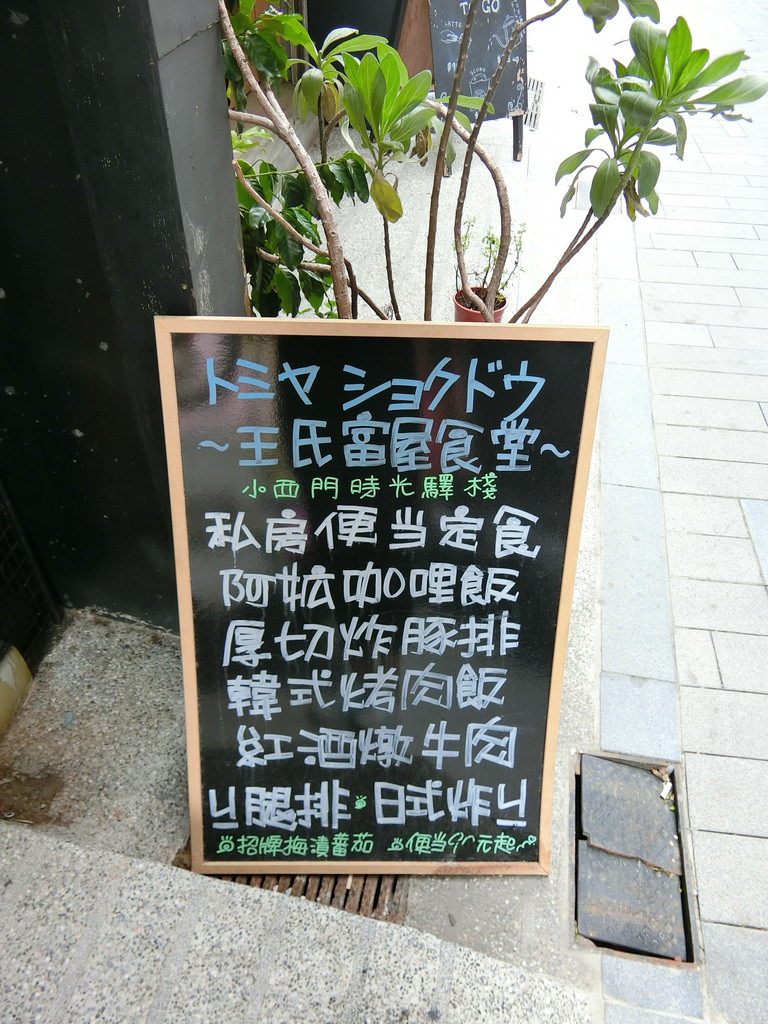 TO GO
LATTE
SCONE
トミヤ ショクドウ
~王氏富屋食堂~
小西門時光驛棧
私房便当定食
阿嬤咖哩飯
厚切炸豚排
韓式烤肉飯
紅酒燉牛肉
ㄐ腿排·日式炸ㄐ
招牌梅漬蕃茄 便当 元起~